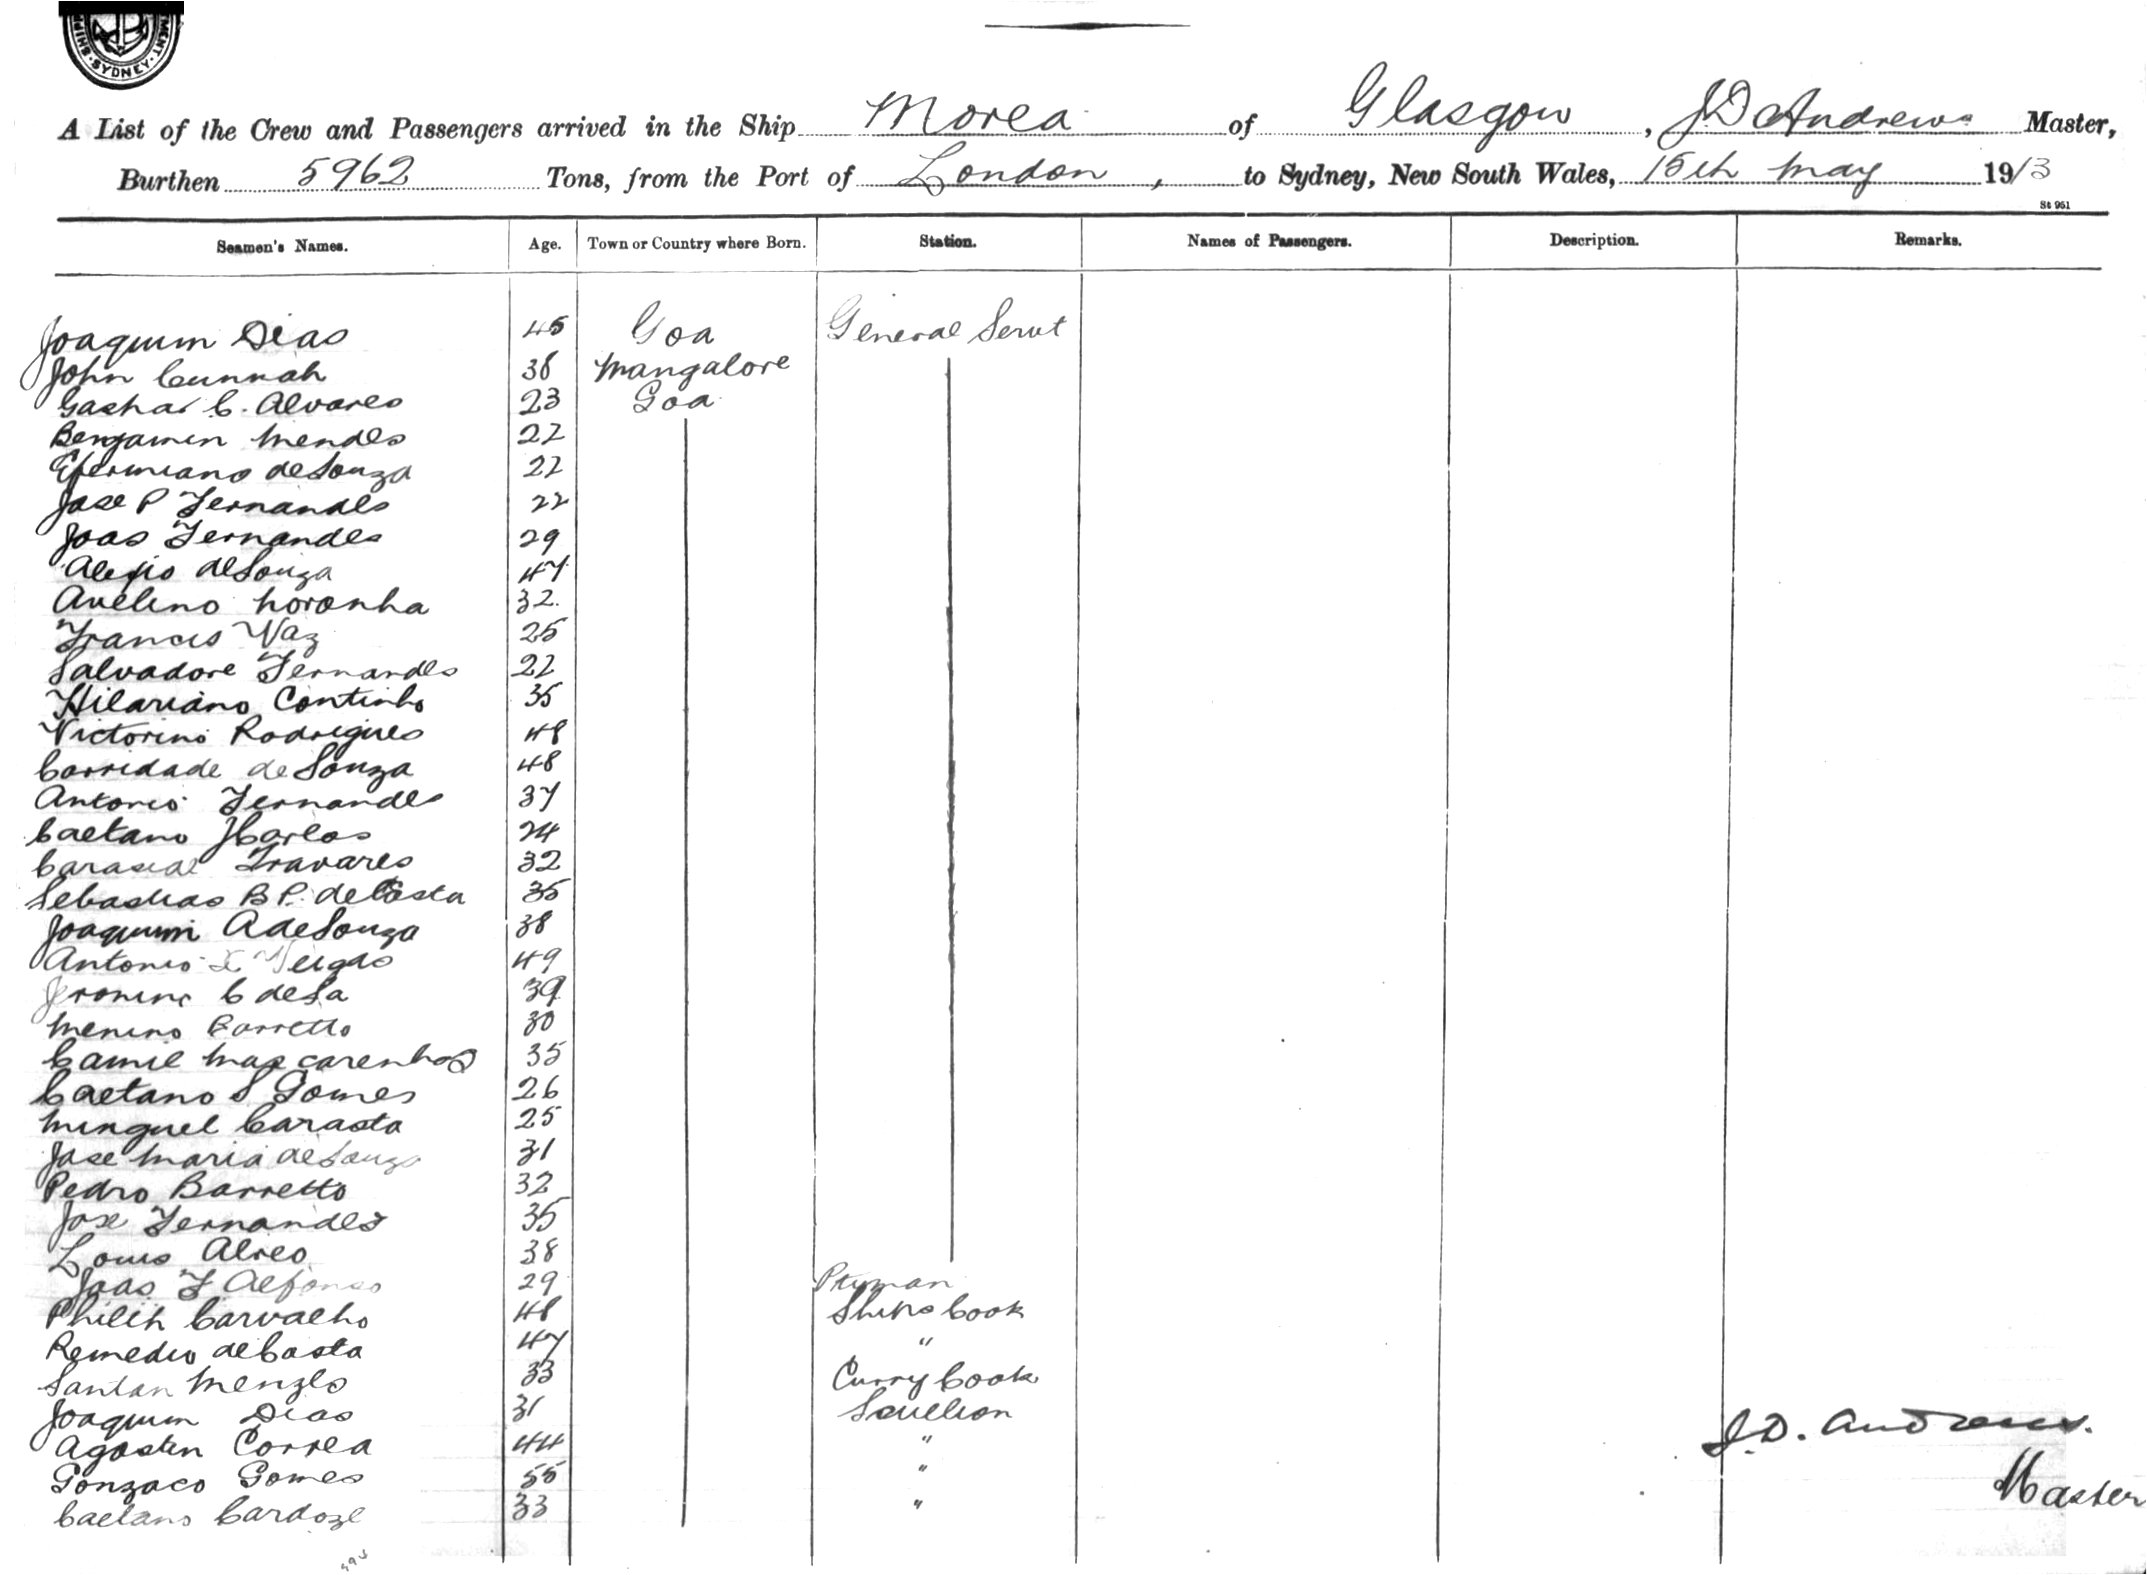 SHIP MENT
SYDNEY
A List of the Crew and Passengers arrived in the Ship Morea of Glasgow, J D Andrews Master,
Burthen 5962 Tons, from the Port of London, to Sydney, New South Wales, 15th May 1913
St 951
Seamen's Names. Age. Town or Country where Born. Station. Names of Passengers. Description. Remarks.
Joaquim Dias 45 Goa General Servt
John Cunnah 38 Mangalore
Gaspar C. Alvares 23 Goa
Benjamin Mendes 22
Efermiano de Souza 22
Jose P Fernandes 22
Joao Fernandes 29
Alejio de Souza 47
Avelino Noronha 32
Francis Vaz 25
Salvadore Fernandes 22
Hilariano Continho 35
Victorino Rodrigues 48
Carridade de Souza 48
Antonio Fernandes 37
Caetano J Carlos 24
Travares 32
Sebastiao B P. de Costa 35
Joaquim A de Souza 38
Antonio X Veigas 49
C de Sa 39
Menino Barretto 30
Camil Mascarenhas 35
Caetano S Gomes 26
Minguel Carasta 25
Jose Maria de Souza 31
Pedro Barretto 32
Jose Fernandes 35
Louis 38
Joao F. Alfonso 29 Ptyman
Philip Carvalho 48 Ships Cook
Remedio de Costa 47 "
Santan Menzes 33 Curry Cook
Joaquim Dias 31 Scullion
Agostin Correa 44 "
Gonzaco Gomes 55 "
Caetano Cardoze 33 "
J. D. Andrews.
Master